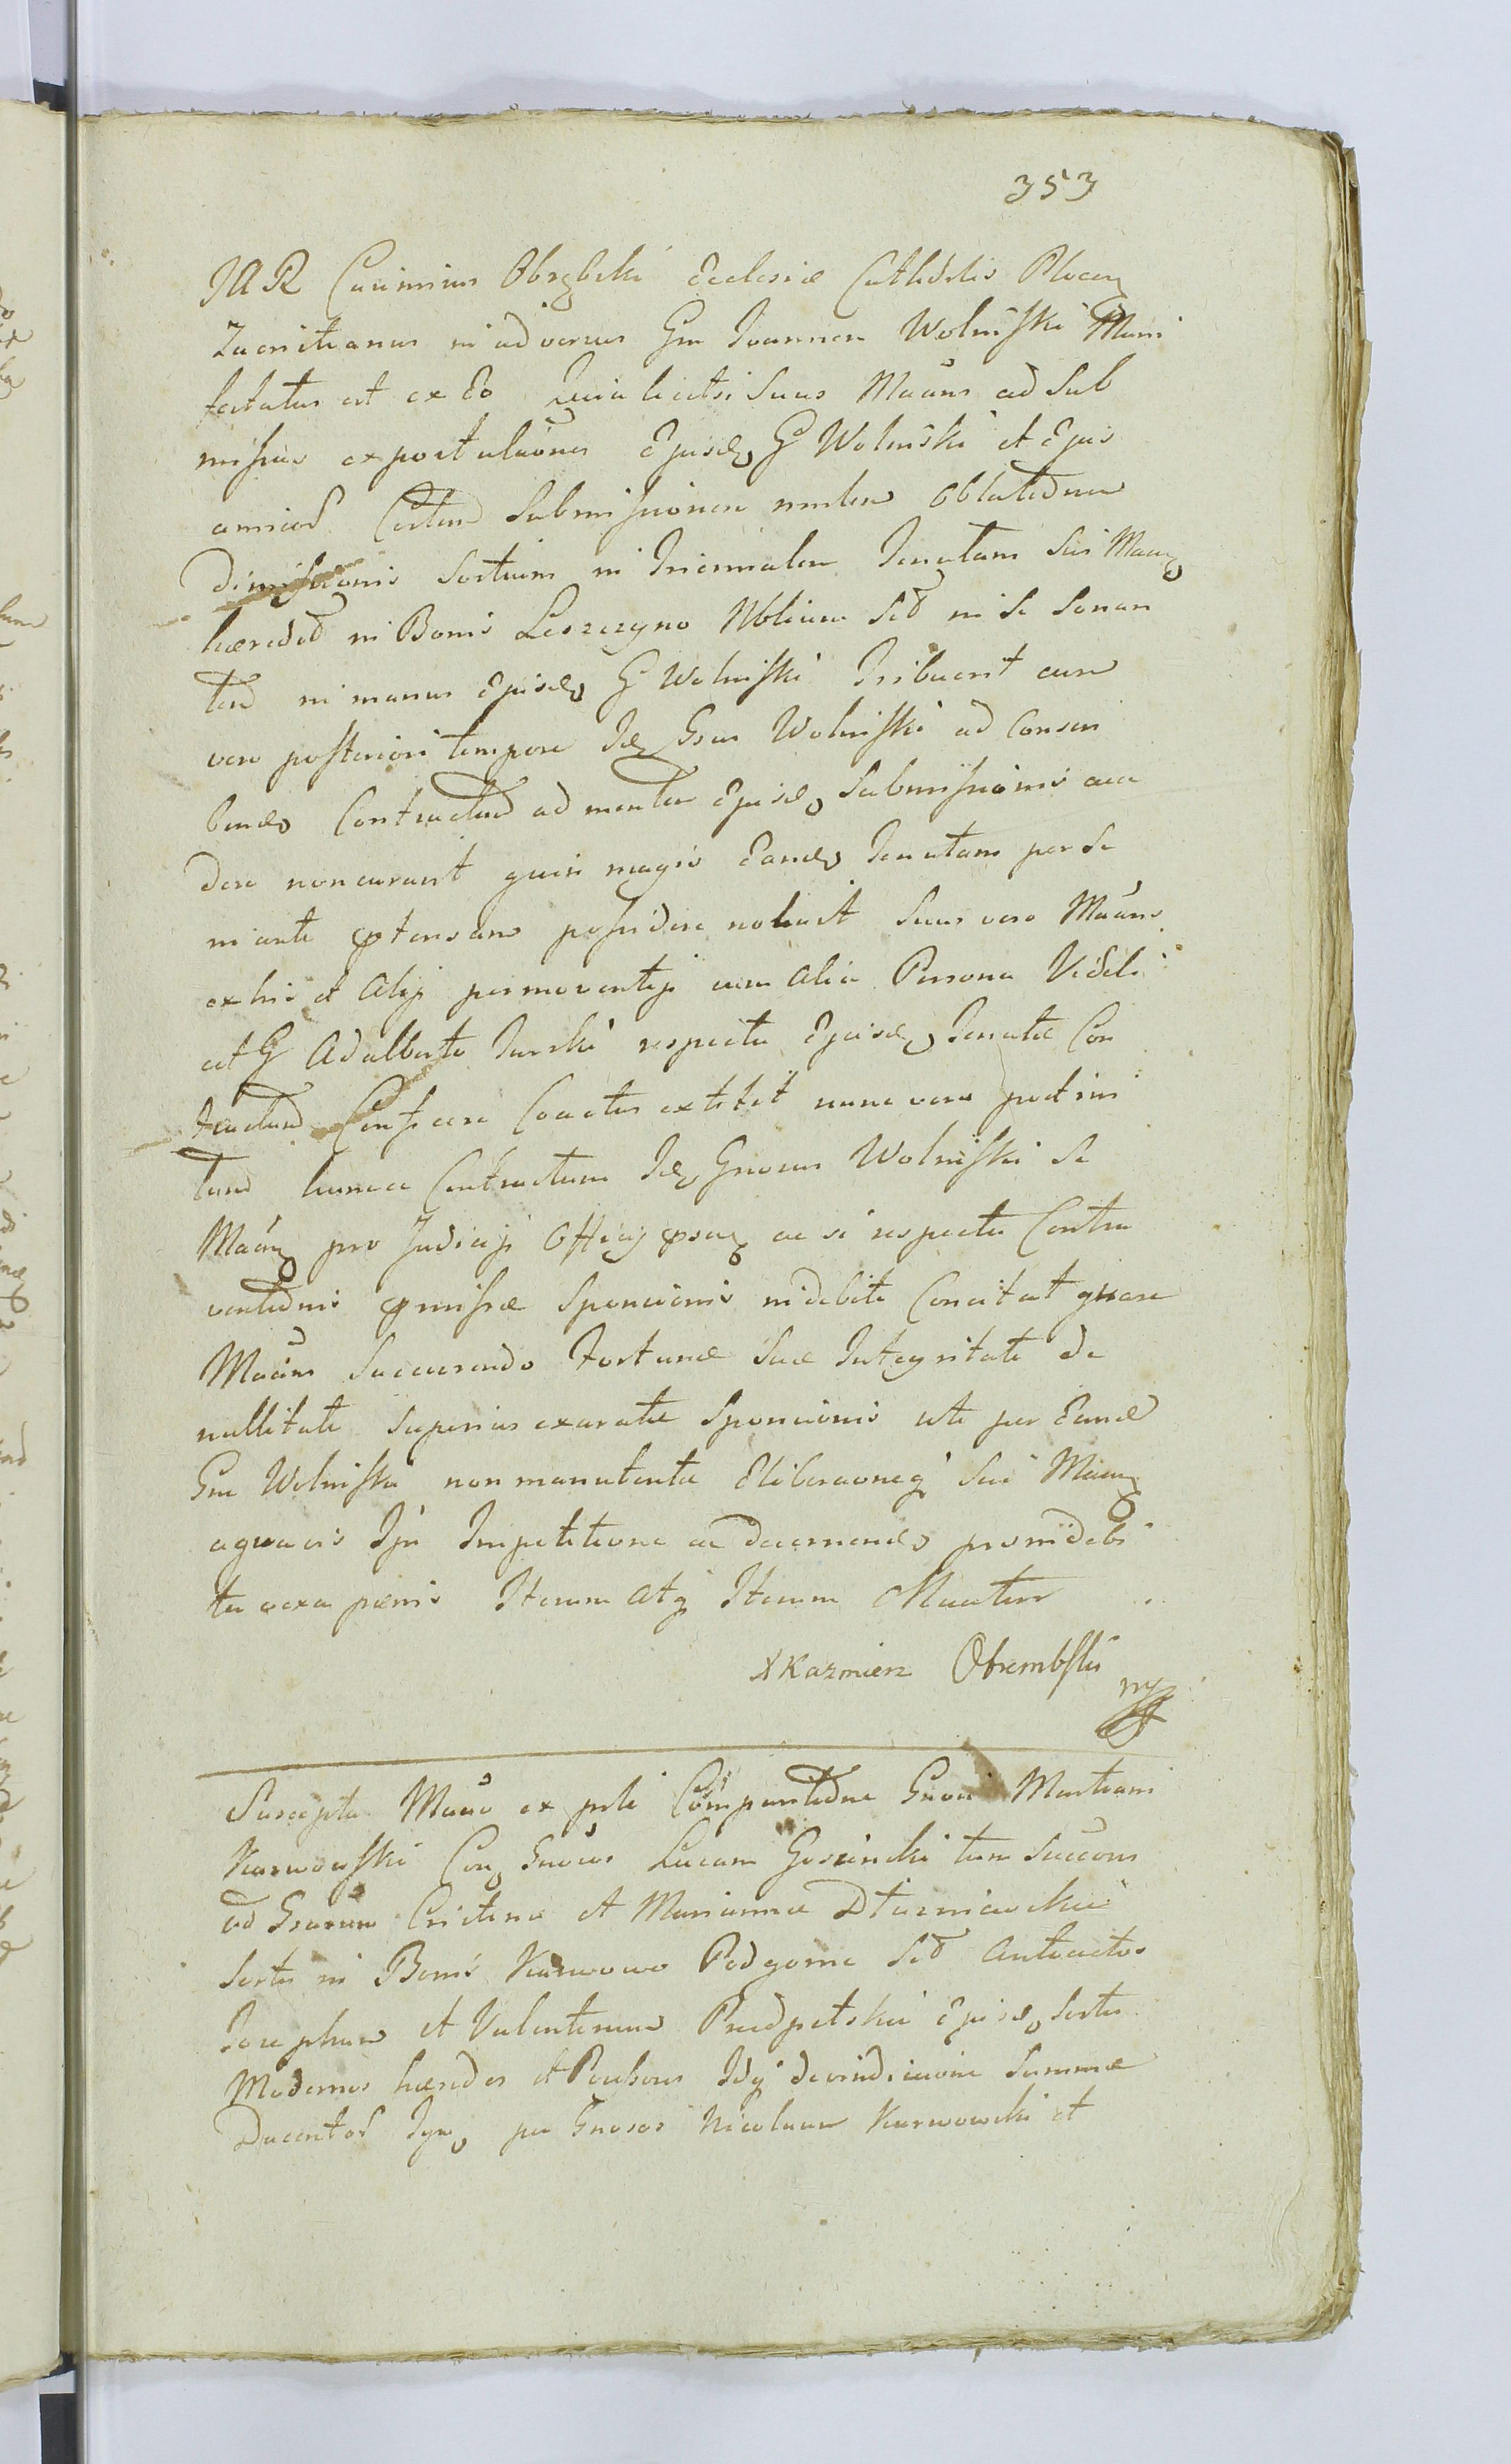 353
JAR Casimirus Obrębski Ecclesiæ Cathedlis Plocen
Zacristianus in adversus Gm Joannem Wolinski Mani
festatur est ex Eo Quia licetsi Suus Maãns ad Sub
missas expostulaões Ejusd G Wolinski et Ejus
amicor Certam Submissionem milem oblatedum
dimissionis Sortium in Triennalem Tenutam Sui Maan
hæredit in Bonis Leszczyno Nblium Sit in se sonan
tem in manus Ejusd G Wolinski Tribuerit cum
vero posteriori tempore Id Gsus Wolinski ad Conscri
bend Contractum ad mentem Ejusd Submissionis acce
dere non curavit quin magis Eand Tenutam per se
ni ante ptensam possidere noluit Suus vero Maãns
ex his et Alijs permoventijs cum Alia Persona Videli
cet G Adalberto Turski respectu Ejusd Tenutæ Con
tractum Conficere Coactus extitit nunc vero post ini
tum hunce Contractum Id Gnosus Wolinski Se
Maãn pro Judicijs Officij psen ac si respectu Contra
ventionis pmissæ Sponcionis indebite Concitat quare
Maãns Succurendo Fortunæ Suæ Integritati de
nullitate Superius exaratæ Sponcionis uti per Eund
Gm Wolinski non manutentæ Eliberaoneq Sui Maan
aquavis Ijn Impetitione ac decernend pro indebi
ta vexa pænis Iterum Atq Iterum Maatur
X Kazmierz Obrembski
mp
Suscepta Maão ex prte Comparitione Gnosi Martiani
Karwowski Con Gnosos Lucam Gosincki tum Succons
od Gsarum Cristinæ et Mariannæ Dłuzniewskie
Sortis in Bonis Karwowo Podgorne Sit Antenatos
Josephum et Valentinum Podpetskie Ejusd Sortis
Modernos hæredes et Possons Idq devindicaoni Summæ
Ducentor Tyn per Gnosos Nicolaum Karwowski et